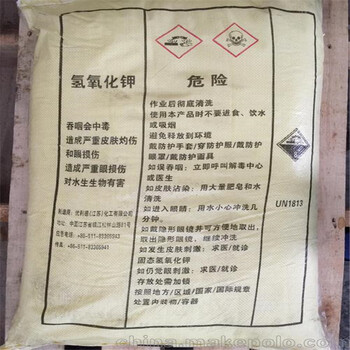 氢氧化钾
危险
吞咽会中毒
造成严重皮肤灼伤
和眼损伤
造成严重眼损伤
对水生生物有害
作业后彻底清洗
使用本产品时不要进食、饮水
或吸烟
避免释放到环境
戴防护手套/穿防护服/戴防护
眼罩/戴防护面具
如误吞咽：立即呼叫解毒中心
或医生
如皮肤沾染：用大量肥皂和水
清洗
如进入眼睛：用水小心冲洗几
分钟。
如戴隐形眼镜并可方便地取出，
取出隐形眼镜，继续冲洗
如发生皮肤刺激：求医/就诊
固态氢氧化钾
如仍觉眼刺激：求医/就诊
存放处需加锁
按照地方/区域/国家/国际规章
处置内装物/容器
UN1813
china.makepolo.com